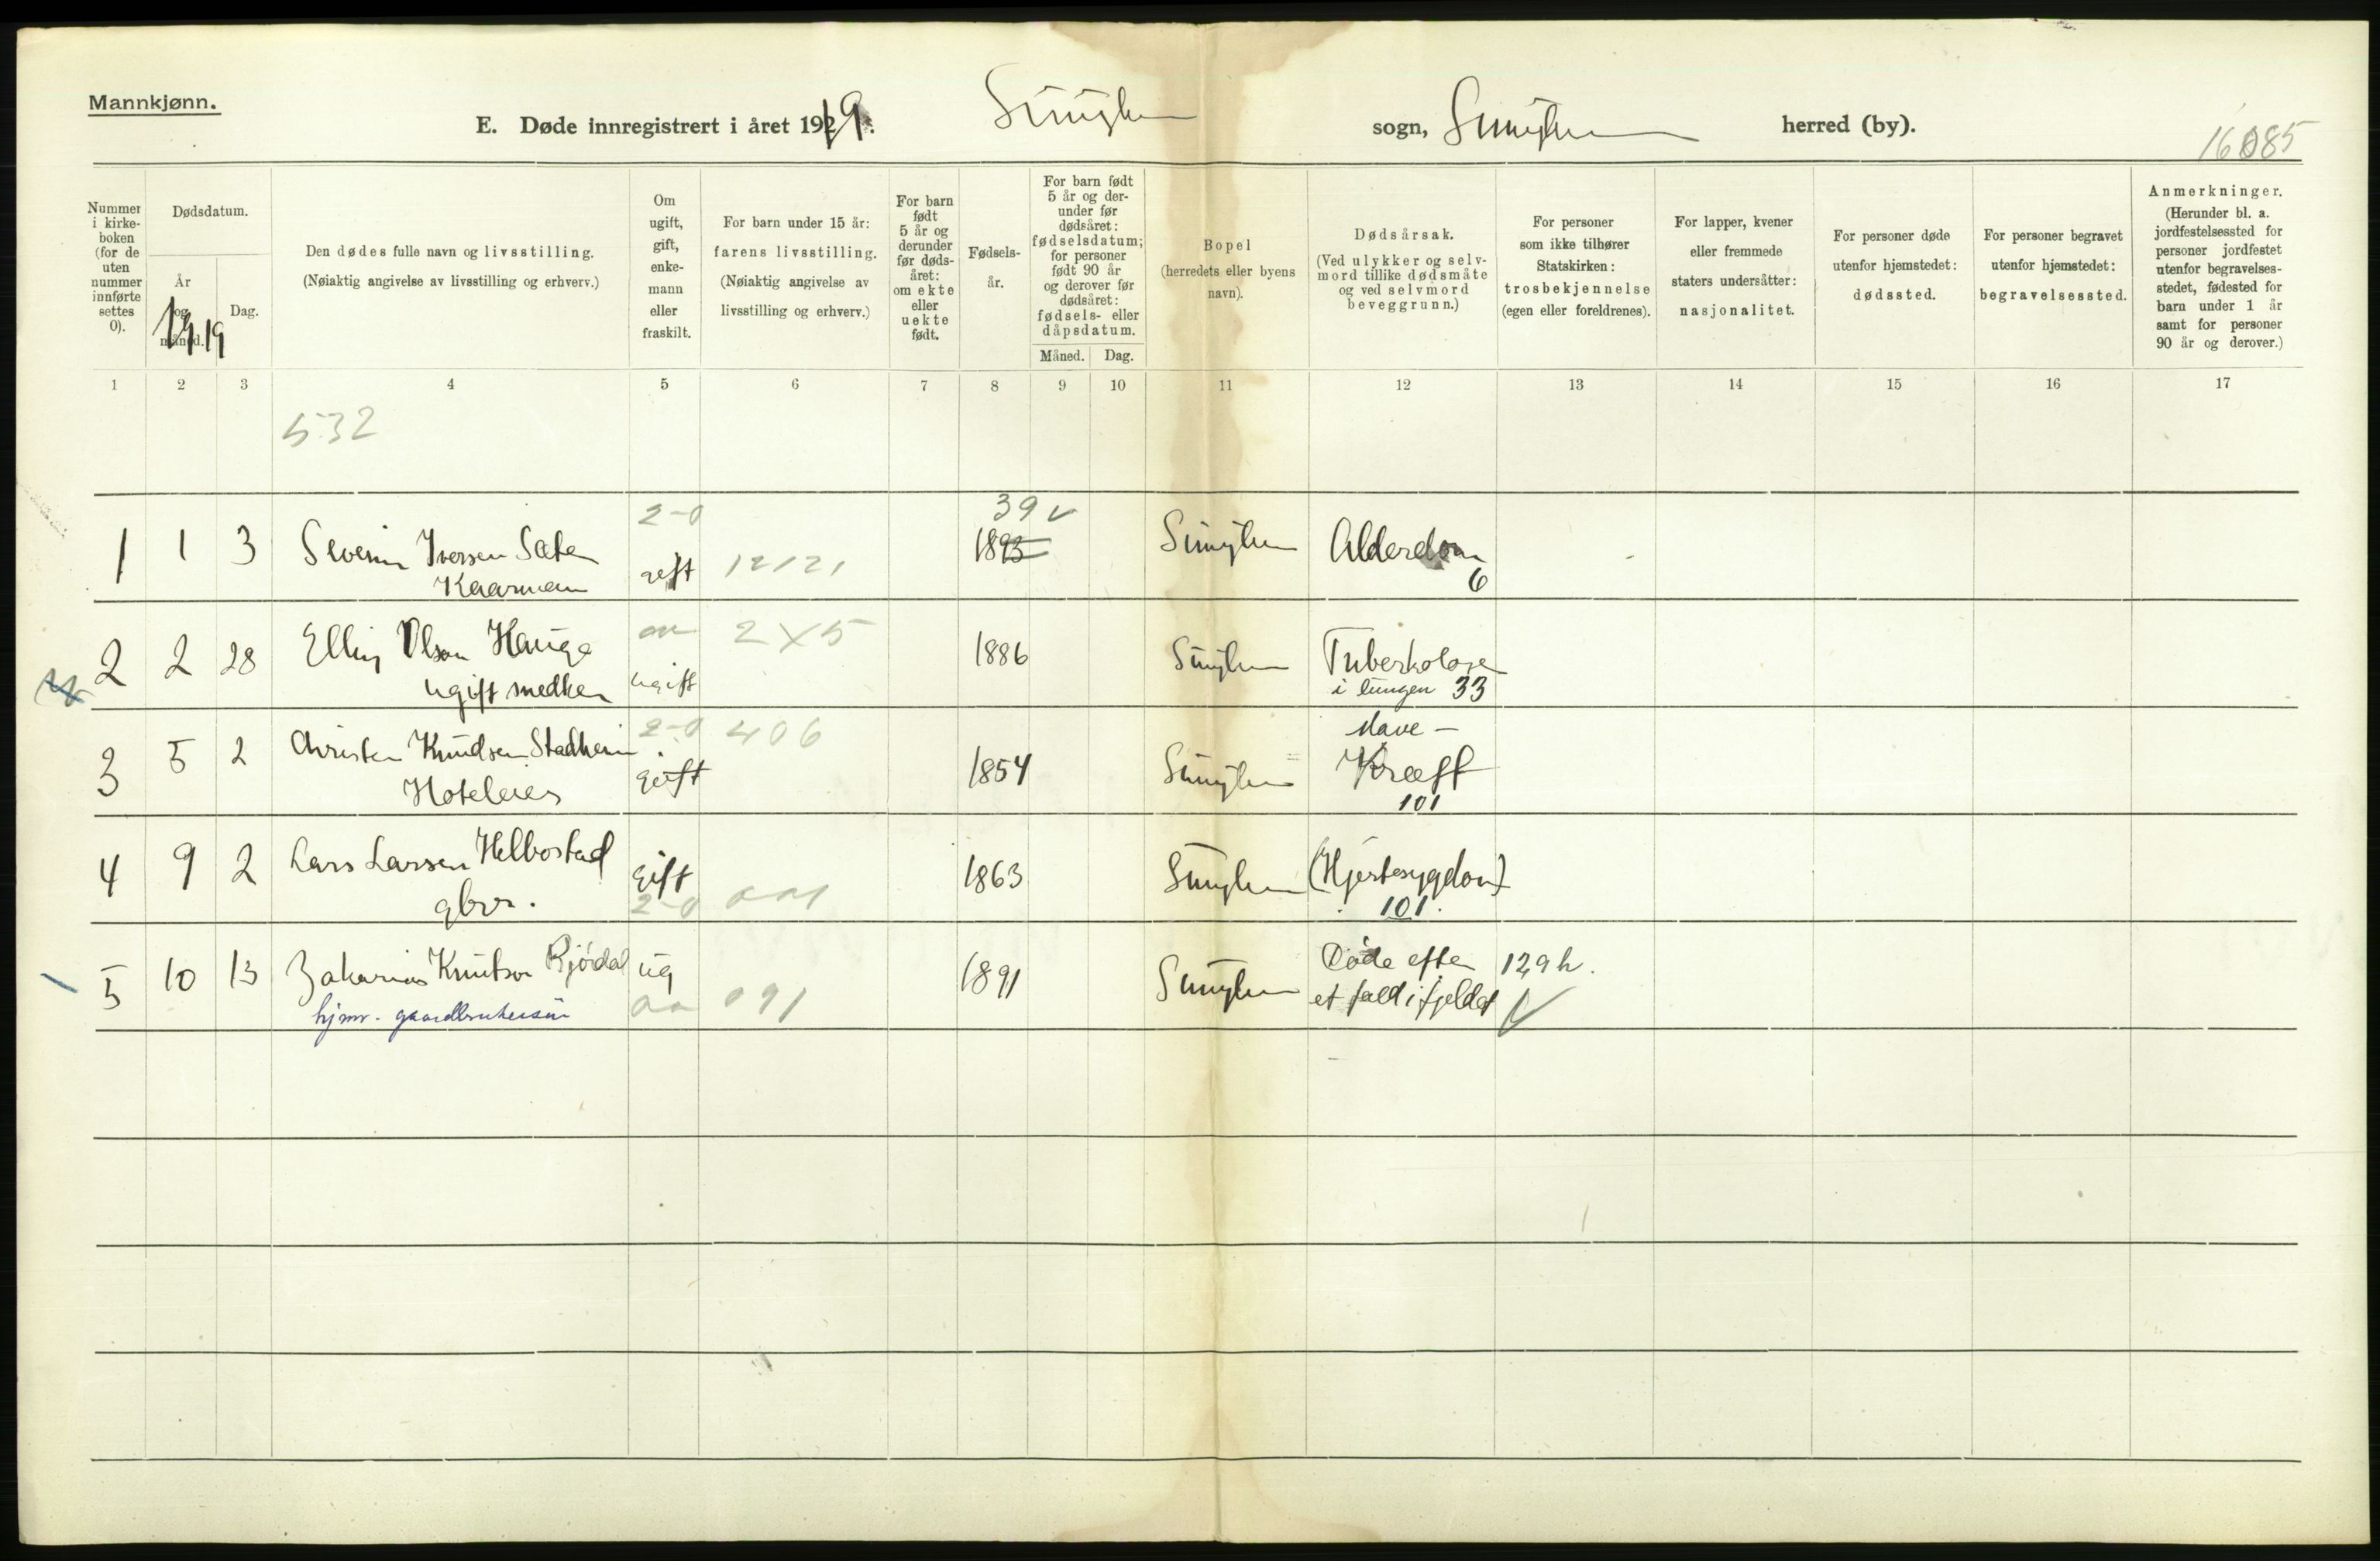 Mannkjønn.
E. Døde innregistrert i året 1919. Sunnylven sogn, Sunnylven herred (by).
16085
Nummer i kirkeboken (for de uten nummer innførte settes 0).
Dødsdatum.
År og måned.
1919
Dag.
Den dødes fulle navn og livsstilling.
(Nøiaktig angivelse av livsstilling og erhverv.)
Om ugift, gift, enkemann eller fraskilt.
For barn under 15 år: farens livsstilling.
(Nøiaktig angivelse av livsstilling og erhverv.)
For barn født 5 år og derunder før dødsåret: om ekte eller uekte født.
Fødselsår.
For barn født 5 år og derunder før dødsåret: fødselsdatum; for personer født 90 år og derover før dødsåret: fødsels- eller dåpsdatum.
Måned. Dag.
Bopel
(herredets eller byens navn).
Dødsårsak.
(Ved ulykker og selvmord tillike dødsmåte og ved selvmord beveggrunn.)
For personer som ikke tilhører Statskirken: trosbekjennelse (egen eller foreldrenes).
For lapper, kvener eller fremmede staters undersåtter: nasjonalitet.
For personer døde utenfor hjemstedet: dødssted.
For personer begravet utenfor hjemstedet: begravelsessted.
Anmerkninger.
(Herunder bl. a. jordfestelsessted for personer jordfestet utenfor begravelsesstedet, fødested for barn under 1 år samt for personer 90 år og derover.)
1 2 3 4 5 6 7 8 9 10 11 12 13 14 15 16 17
532
2-0 39 v
1 1 3 Severin Iversen Sæter gift 12121 1893 Sunnylven Alderdom
Kaarmann 6
2 2 28 Elling Olson Hauge 2X5 1886 Sunnylven Tuberkolose
ugift snedker ugift i lungen 33
2-0 406 Mave-
3 5 2 Christen Knudsen Stadheim gift 1854 Sunnylven Kræft
Hoteleier 101
4 9 2 Lars Larsen Hellbostad gift 1863 Sunnylven (Hjertesygdom)
gbr. 2-0 001 101
5 10 13 Zakarias Knutson Rjördal ug 1891 Sunnylven Døde efter 129h.
hjmv. gaardbrukersøn 091 et fald i fjeldet